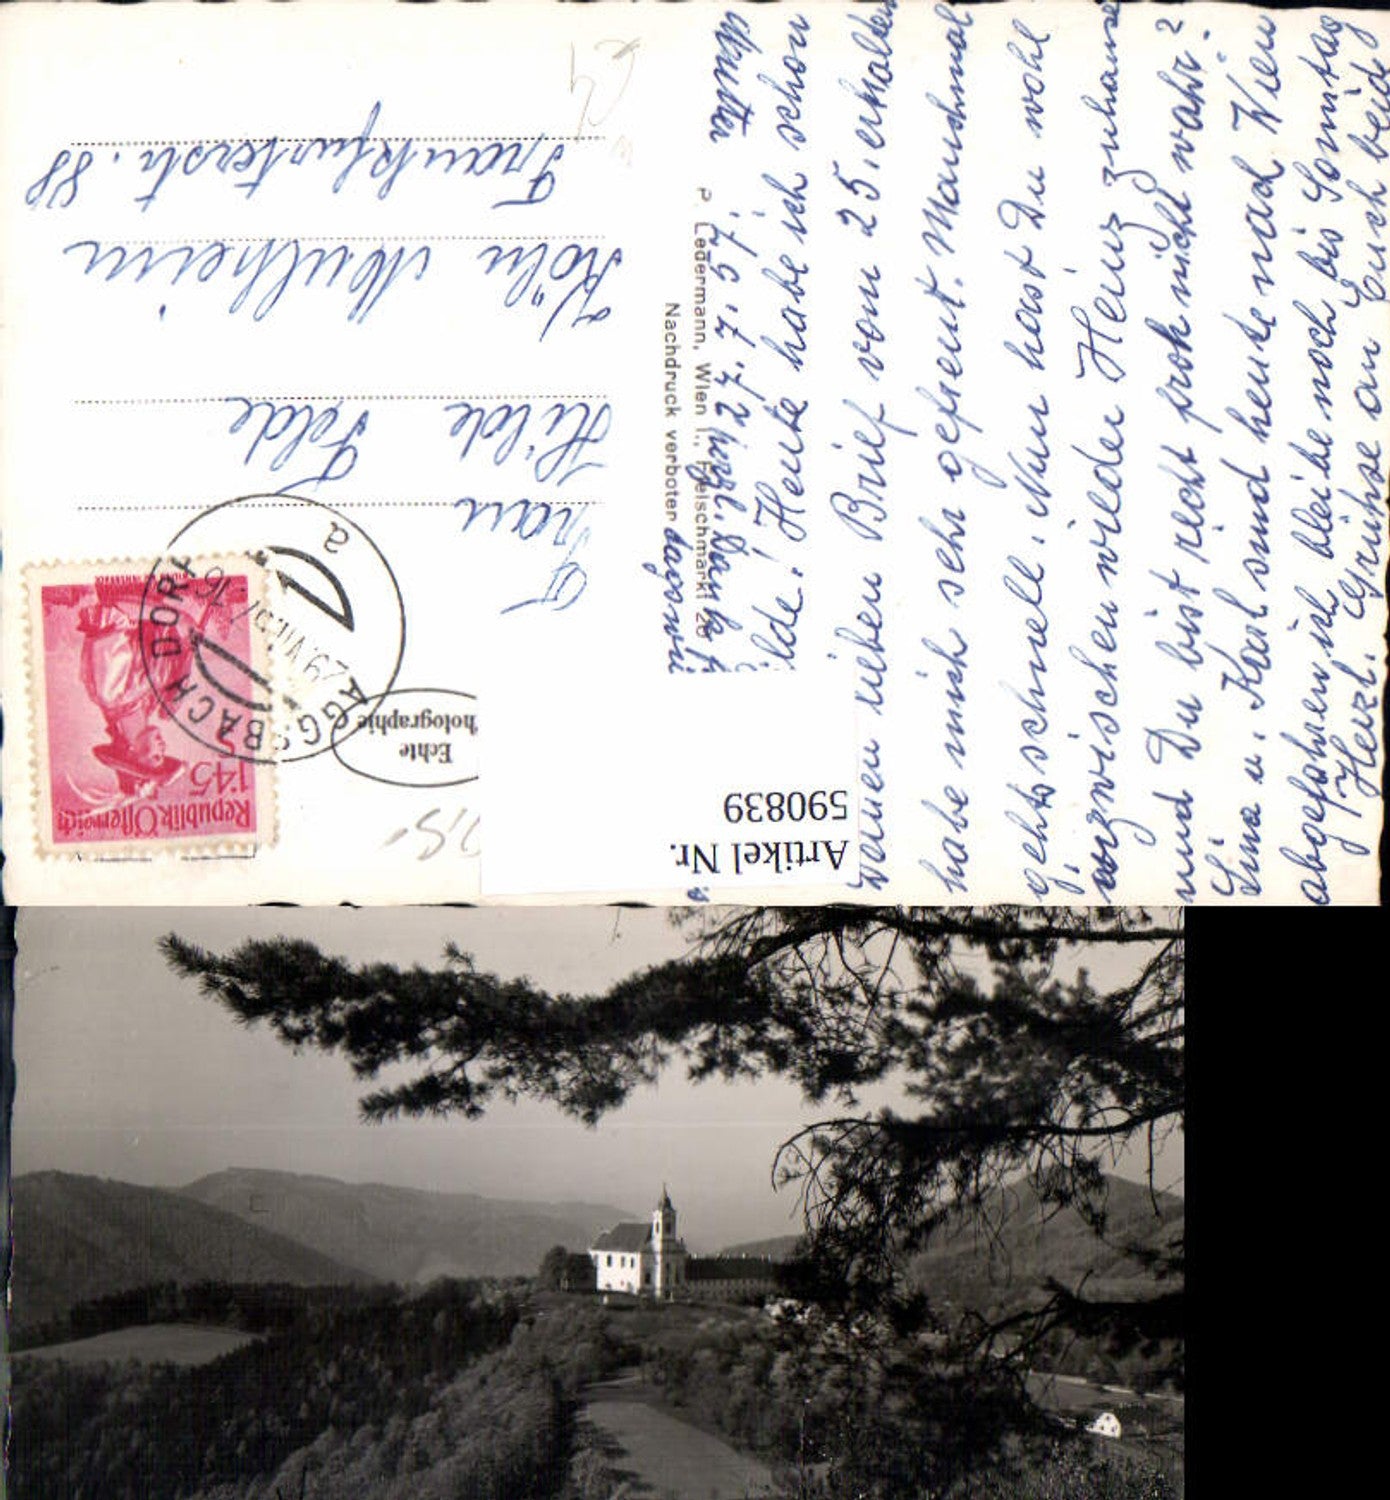 29.7.57.
lde! Heute habe ich schon
Deinen lieben Brief vom 25. erhalten
habe mich sehr gefreut. Manchmal
gehts schnell. Nun hast Du wohl
inzwischen wieder Heinz zuhause
und Du bist recht froh nicht wahr?
Lina u. Karl sind heute nach Wien
abgefahren ich bleibe noch bis Sonntag
Herzl. Grüße an Euch beide
Mutter
herzl. Dank f.
P. Ledermann, Wien I., Fleischmarkt 20
Nachdruck verboten
Echte
Photographie
Republik Österreich
1'45
AGGSBACH DORF
29.VII.57 16
a
Frau
Hilde Felde
Köln Mülheim
Frankfurterstr. 88
Artikel Nr.
590839